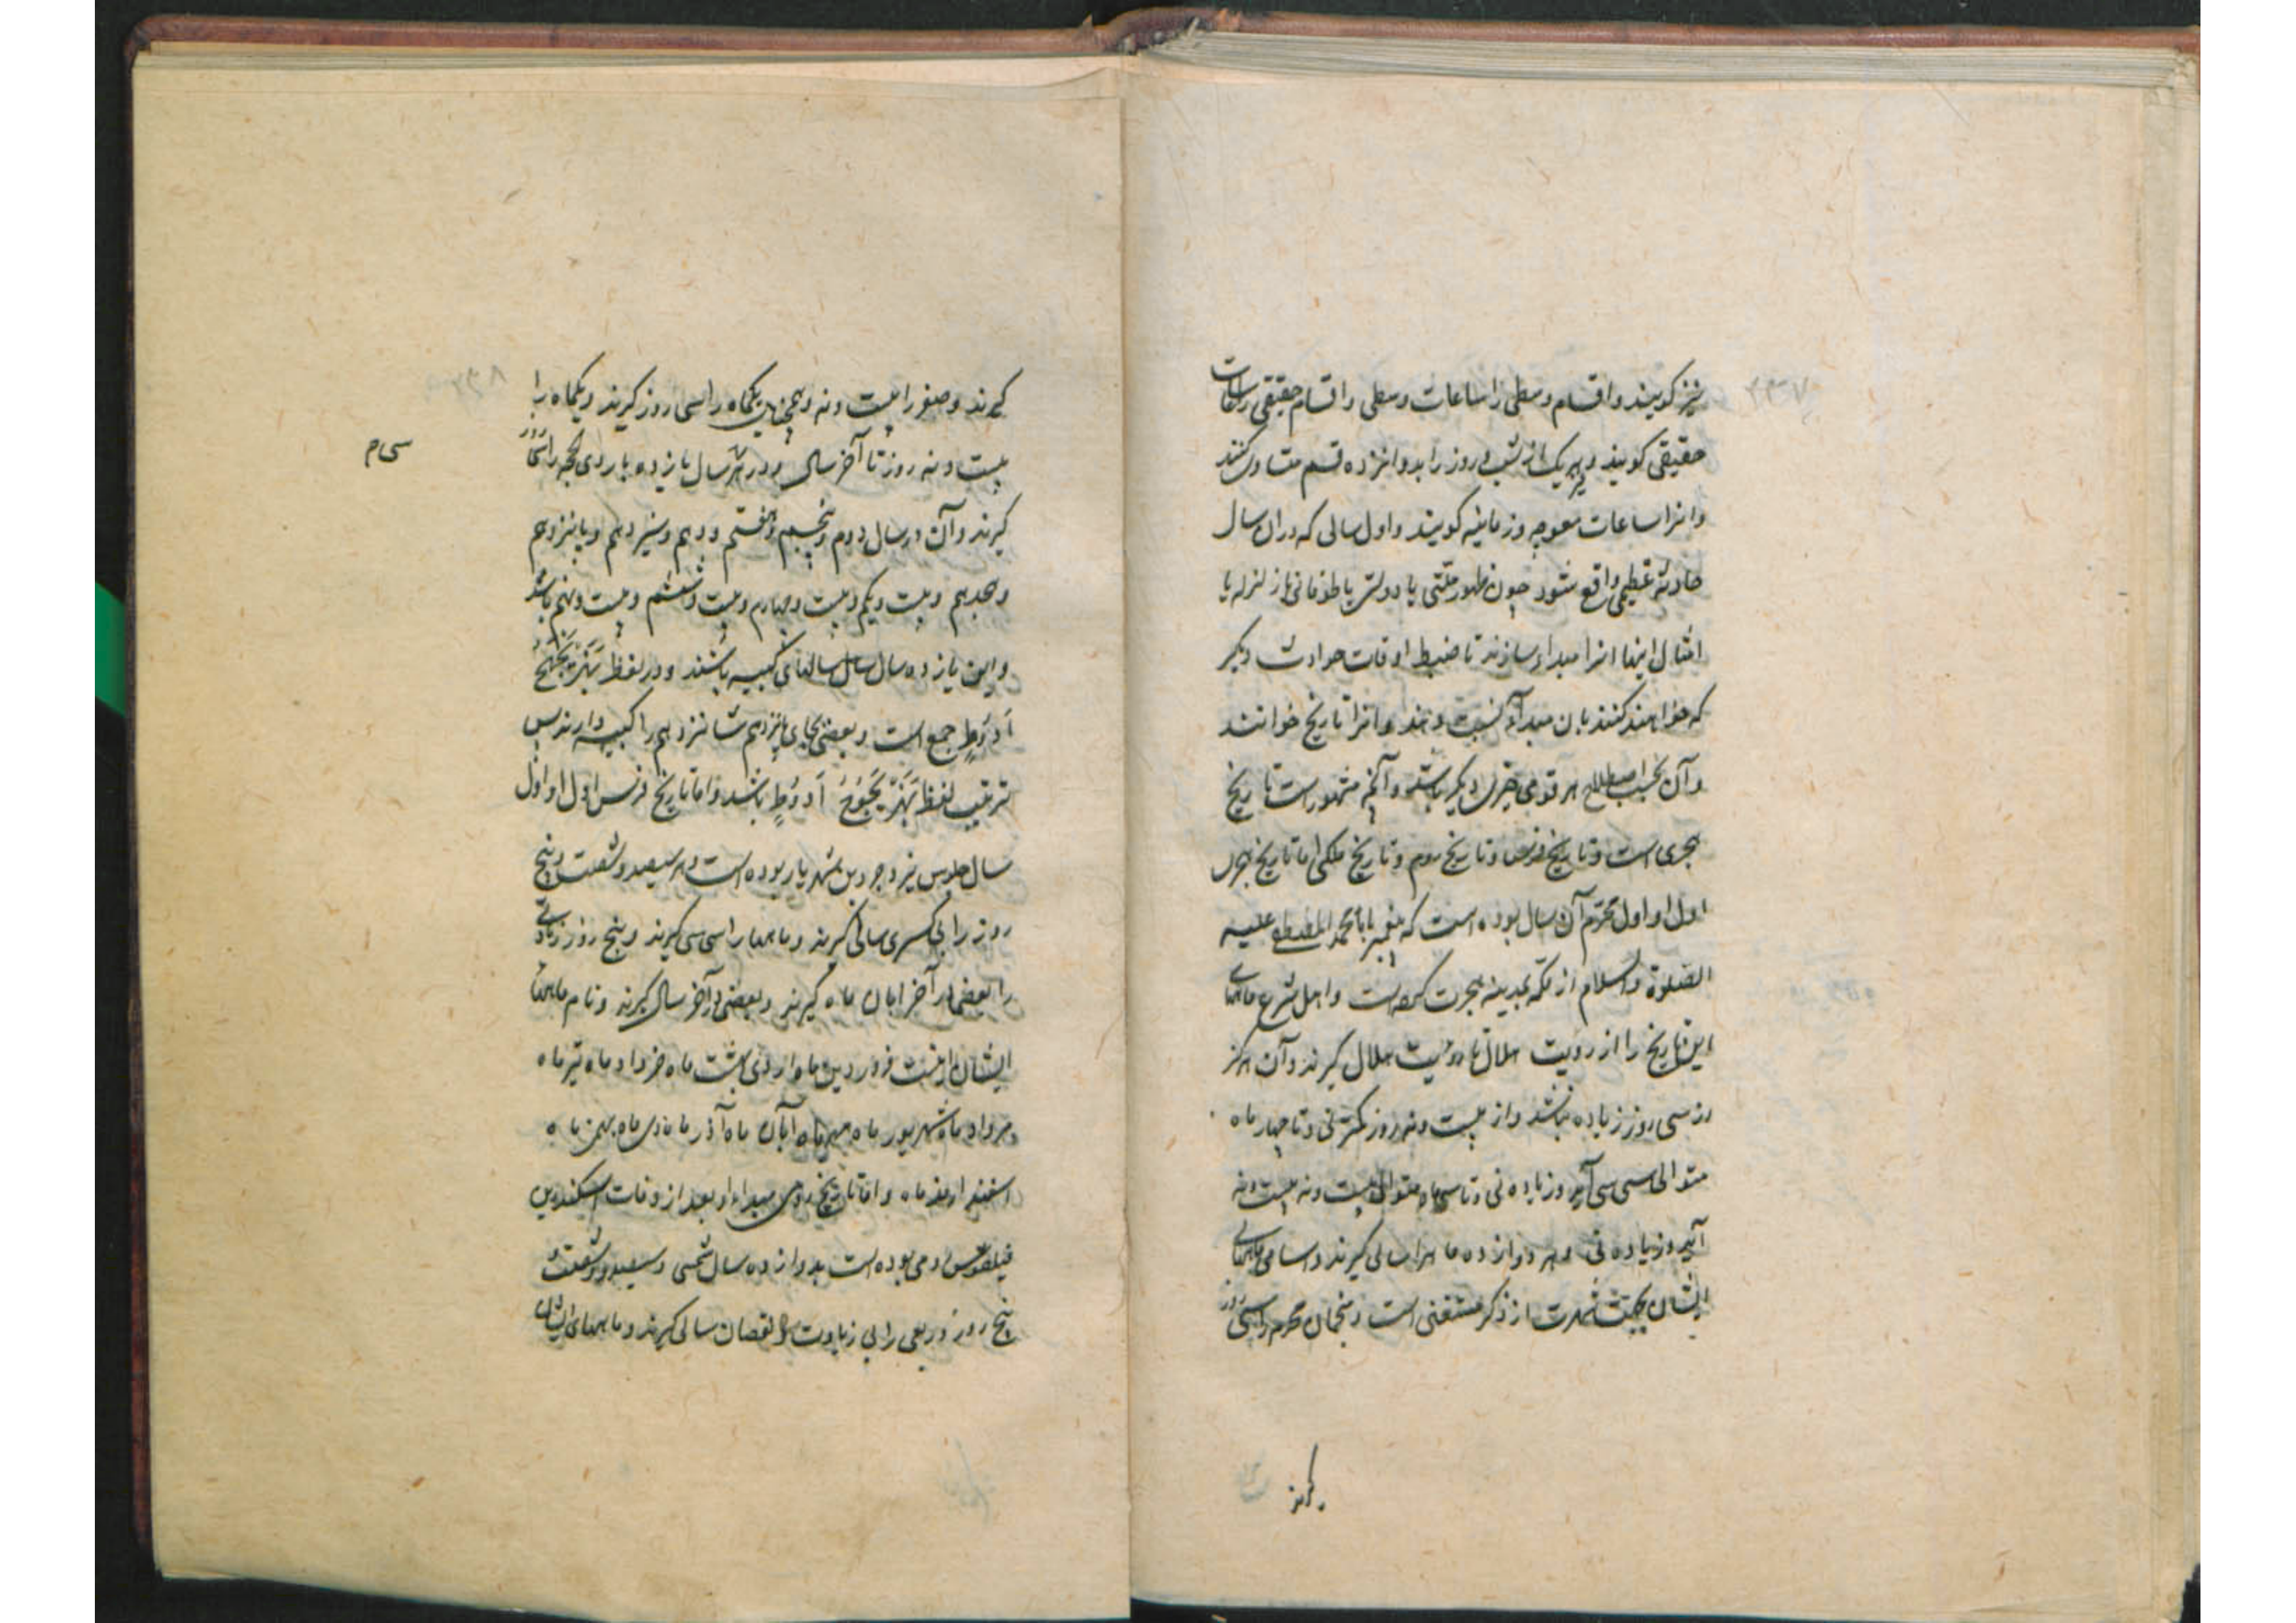 نیز کویند و اقسام وسطی را ساعات وسطی و اقسام حقیقی را ساعات
حقیقی کویند و هر یک از شب و روز را بدوانزده قسم متساوی کنند
و انرا ساعات معوجه و زمانیه کویند و اول سالی که در ان سال
حادثه عظیمی واقع شود چون ظهور ملتی یا دولتی یا طوفانی یا زلزله یا
امثال اینها انرا مبداء سازند تا ضبط اوقات حوادث دیکر
که خواهند کنند بان مبداء نسبت دهند و انرا تاریخ خوانند
و آن بحسب اصطلاح هر قومی چیزی دیکر باشد و آنچه مشهور است تاریخ
هجری است و تاریخ فرس و تاریخ روم و تاریخ ملکی اما تاریخ هجری
اول او اول محرم آن سال بوده است که پیغمبر ما محمد المصطفی علیه
الصلوة والسلام از مکه بمدینه هجرت کرده است و اهل شرع ماههای
این تاریخ را از رویت هلال تا رویت هلال کیرند و آن هرکز
از سی روز زیاده نباشد و از بیست و نه روز کمتر نی و تا چهار ماه
متوالی سی سی آید و زیاده نی و تا سه ماه متوالی بیست و نه بیست و نه
آید و زیاده نی و هر دوازده ماه را سالی کیرند و اسامی ماههای
ایشان بجهت شهرت از ذکر مستغنی است و منجمان محرم را سی روز
کیرند
۲۳۷
کیرند و صفر را بیست و نه و همچنین یکماه را سی روز کیرند و یکماه را
بیست و نه روز تا آخر سال و در هر سی سال یازده بار ذی الحجه را سی روز
سی ام
کیرند و آن در سال دوم و پنجم و هفتم و دهم و سیزدهم و پانزدهم
و هجدهم و بیست و یکم و بیست و چهارم و بیست و ششم و بیست و نهم باشد
و این یازده سال سالهای کبیسه باشند و در لفظ بهزیجهح
ادوط جمع است و بعضی بجای پانزدهم شانزدهم را کبیسه دارند پس
ترتیب لفظ بهزیجوح ادوط باشد و اما تاریخ فرس اول او اول
سال جلوس یزدجرد بن شهریار بوده است و هر سیصد و شصت و پنج
روز را بی کسری سالی کیرند و ماهها را سی سی کیرند و پنج روز زیادتی
را بعضی در آخر ابان ماه کیرند و بعضی در آخر سال کیرند و نام ماهها
ایشان اینست فروردین ماه اردی بهشت ماه خرداد ماه تیر ماه
مرداد ماه شهریور ماه مهر ماه آبان ماه آذر ماه دی ماه بهمن ماه
اسفندارمذ ماه و اما تاریخ رومی مبداء او بعد از وفات اسکندر بن
فیلقوس رومی بوده است بدوازده سال شمسی و سیصد و شصت و
پنج روز و ربعی را بی زیادت و نقصان سالی کیرند و ماههای ایشان